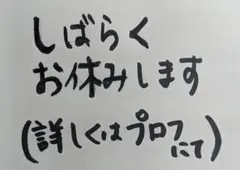 しばらく
お休みします
(詳しくはプロフにて)